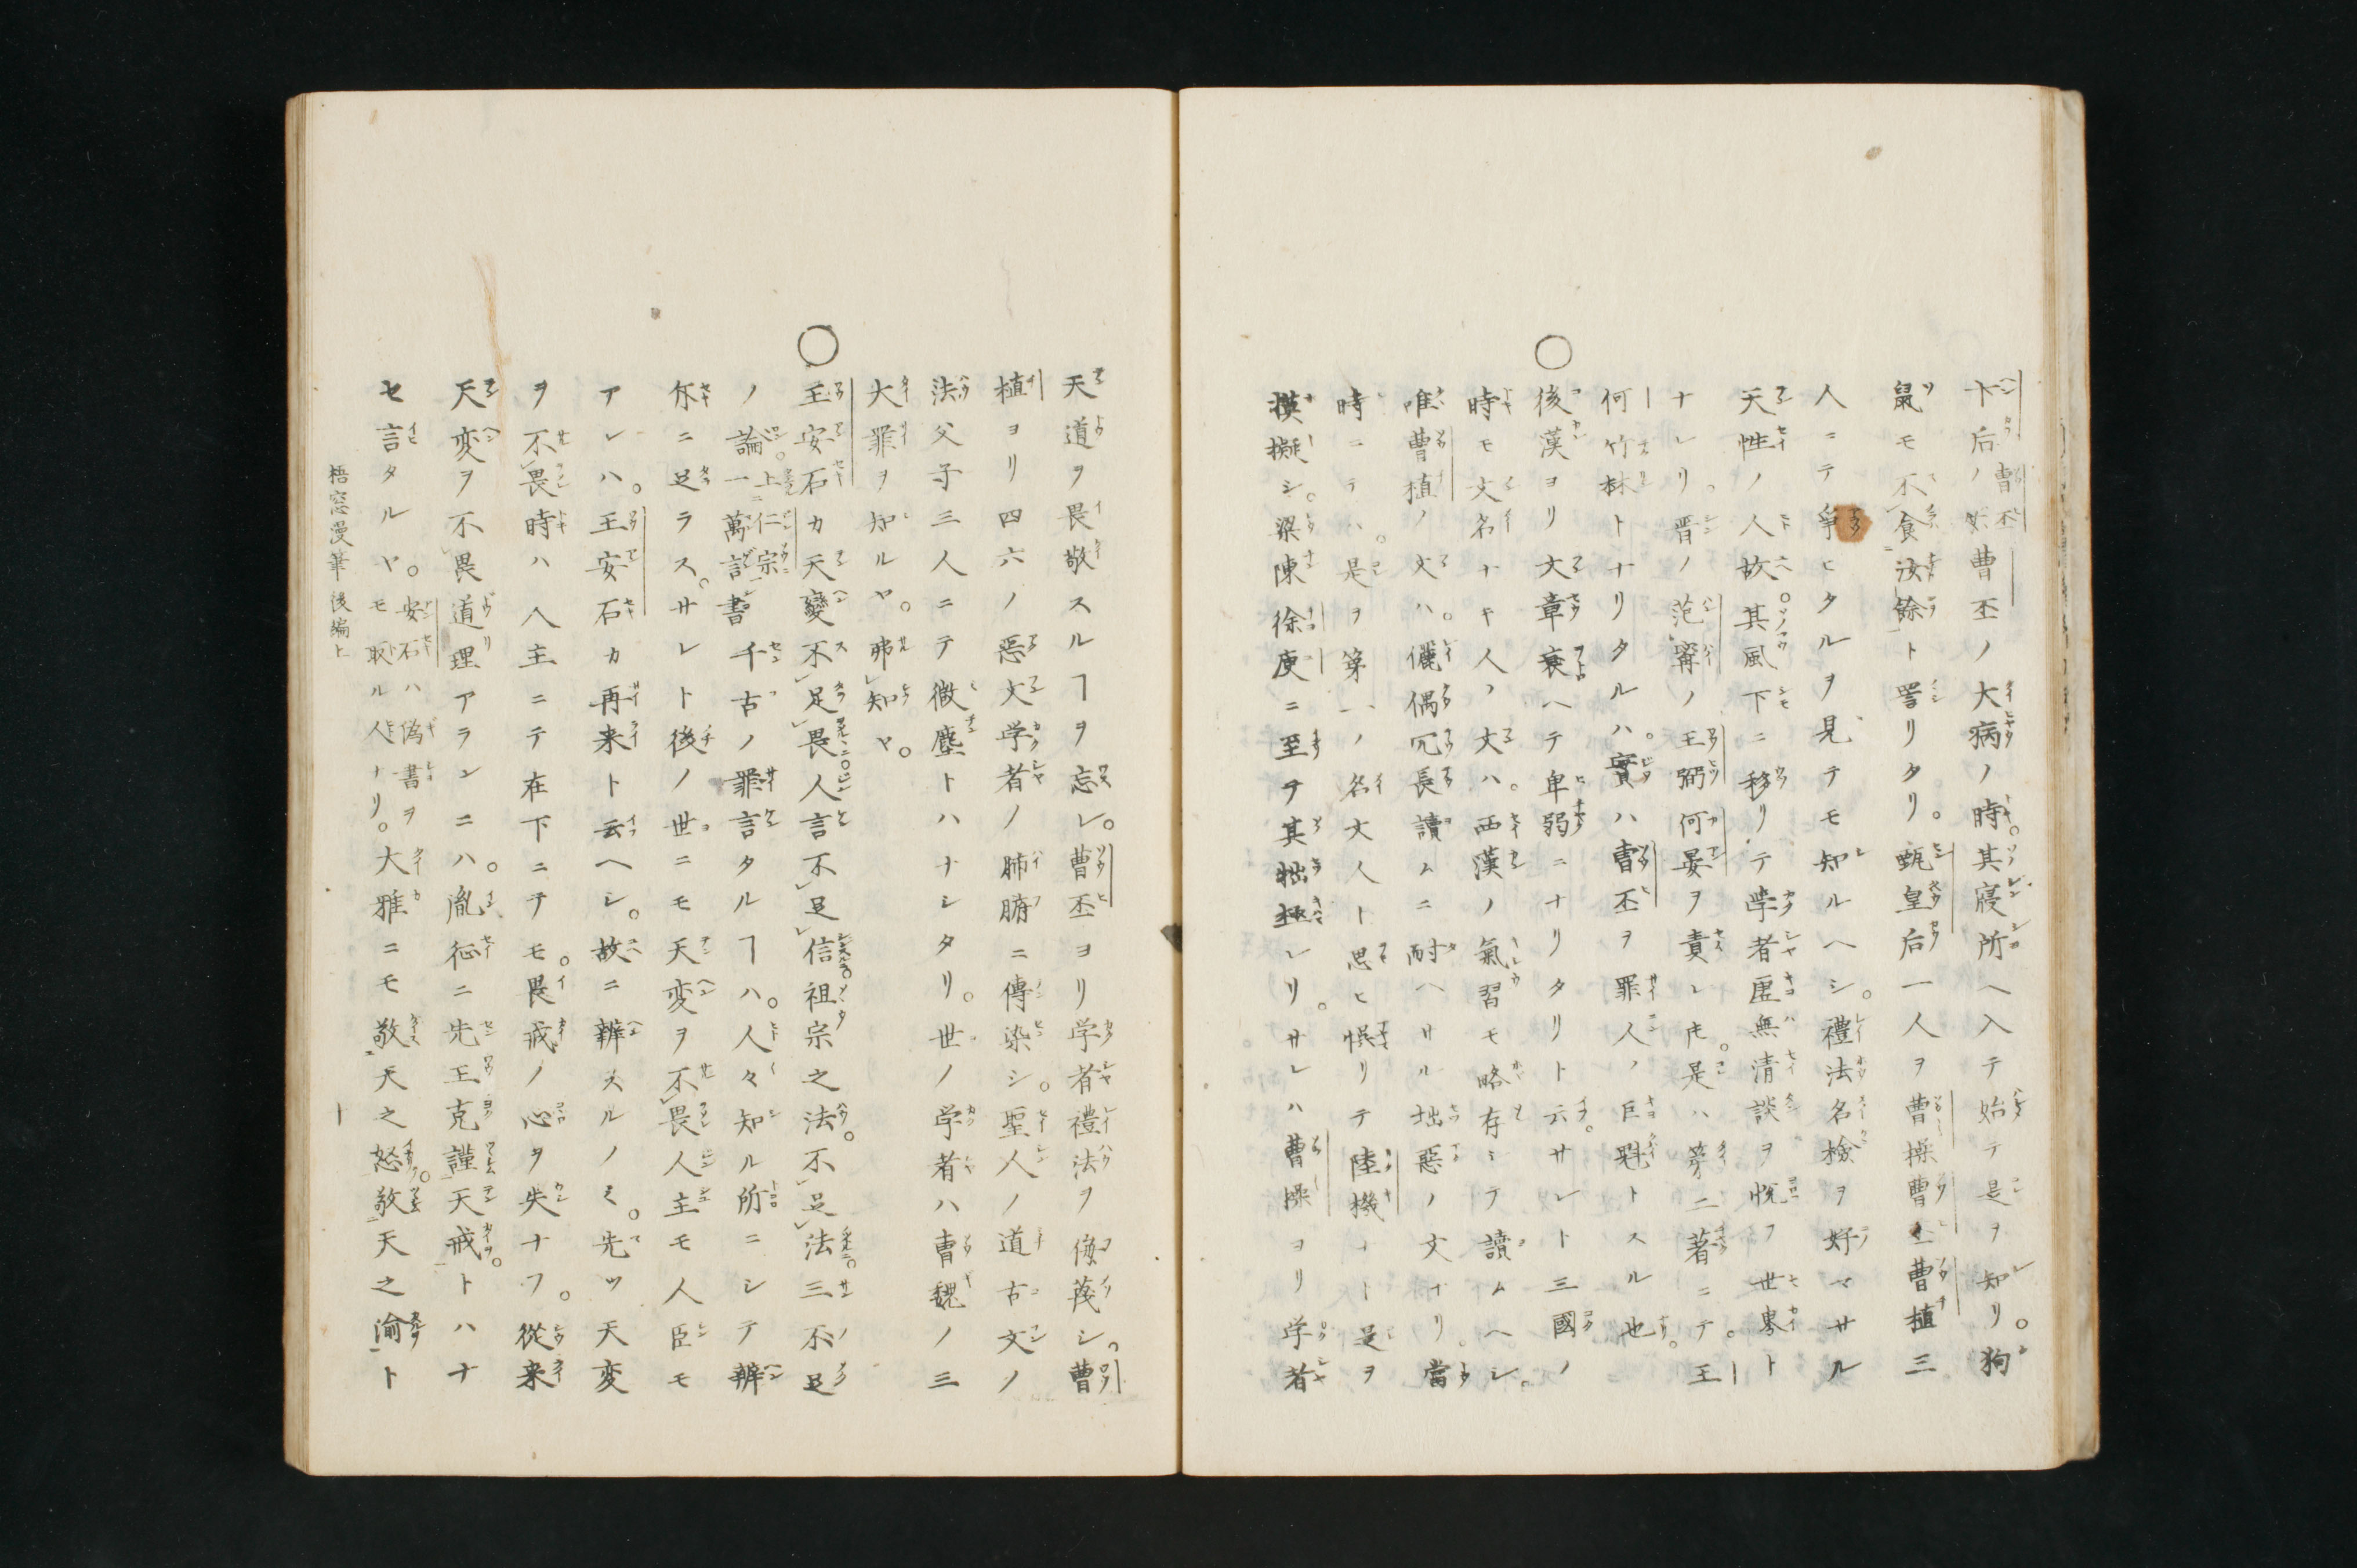 卞后ノ曹丕ノ母曹丕ノ大病ノ時。其寢所ヘ入テ始テ是ヲ知リ。狗
鼠モ不食汝餘ト詈リタリ。甄皇后一人ヲ曹操曹丕曹植三
人ニテ爭ヒタルヲ見テモ知ルヘシ。禮法名檢ヲ好マサル
天性ノ人故。其風下ニ移リテ學者虛無清談ヲ悅フ世界ト
ナレリ。晋ノ范甯ノ王弼何晏ヲ責レ𪜈。是ハ第二著ニテ。王
何竹林トナリタルハ。實ハ曹丕ヲ罪人ノ巨魁トスル也。
後漢ヨリ文章衰ヘテ卑弱ニナリタリト云。サレト三國ノ
時モ文名ナキ人ノ文ハ。西漢ノ氣習モ略存シテ讀ムヘシ。
唯曹植ノ文ハ。儷偶冗長讀ムニ耐ヘサル拙惡ノ文ナリ。當
時ニテハ。是ヲ第一ノ名文人ト思ヒ悞リテ陸機ナト是ヲ
摸擬シ。梁陳徐庾ニ至テ其拙極レリ。サレハ曹操ヨリ学者
天道ヲ畏敬スルヿヲ忘レ。曹丕ヨリ学者禮法ヲ侮蔑シ。曹
植ヨリ四六ノ惡文学者ノ肺腑ニ傳染シ。聖人ノ道古文ノ
法父子三人ニテ微塵トハナシタリ。世ノ学者ハ曹魏ノ三
大罪ヲ知ルヤ。弗知ヤ。
王安石カ天變不足畏人言不足信祖宗之法。不足法三不足
ノ論。上仁宗一萬言書千古ノ罪言タルヿハ。人々知ル所ニシテ辨
ニ足ラス。サレト後ノ世ニモ天変ヲ不畏人主モ人臣モ
アレハ。王安石カ再来ト云ヘシ。故ニ辨スルノミ。先ツ天変
ヲ不畏時ハ人主ニテ在下ニテモ。畏戒ノ心ヲ失ナフ。從来
天変ヲ不畏道理アランニハ。胤征ニ先王克謹天戒。トハナ
セ言タルヤ。安石ハ偽書ヲモ取ル人ナリ。大雅ニモ敬天之怒。敬天之渝ト
梧窓漫筆後編上